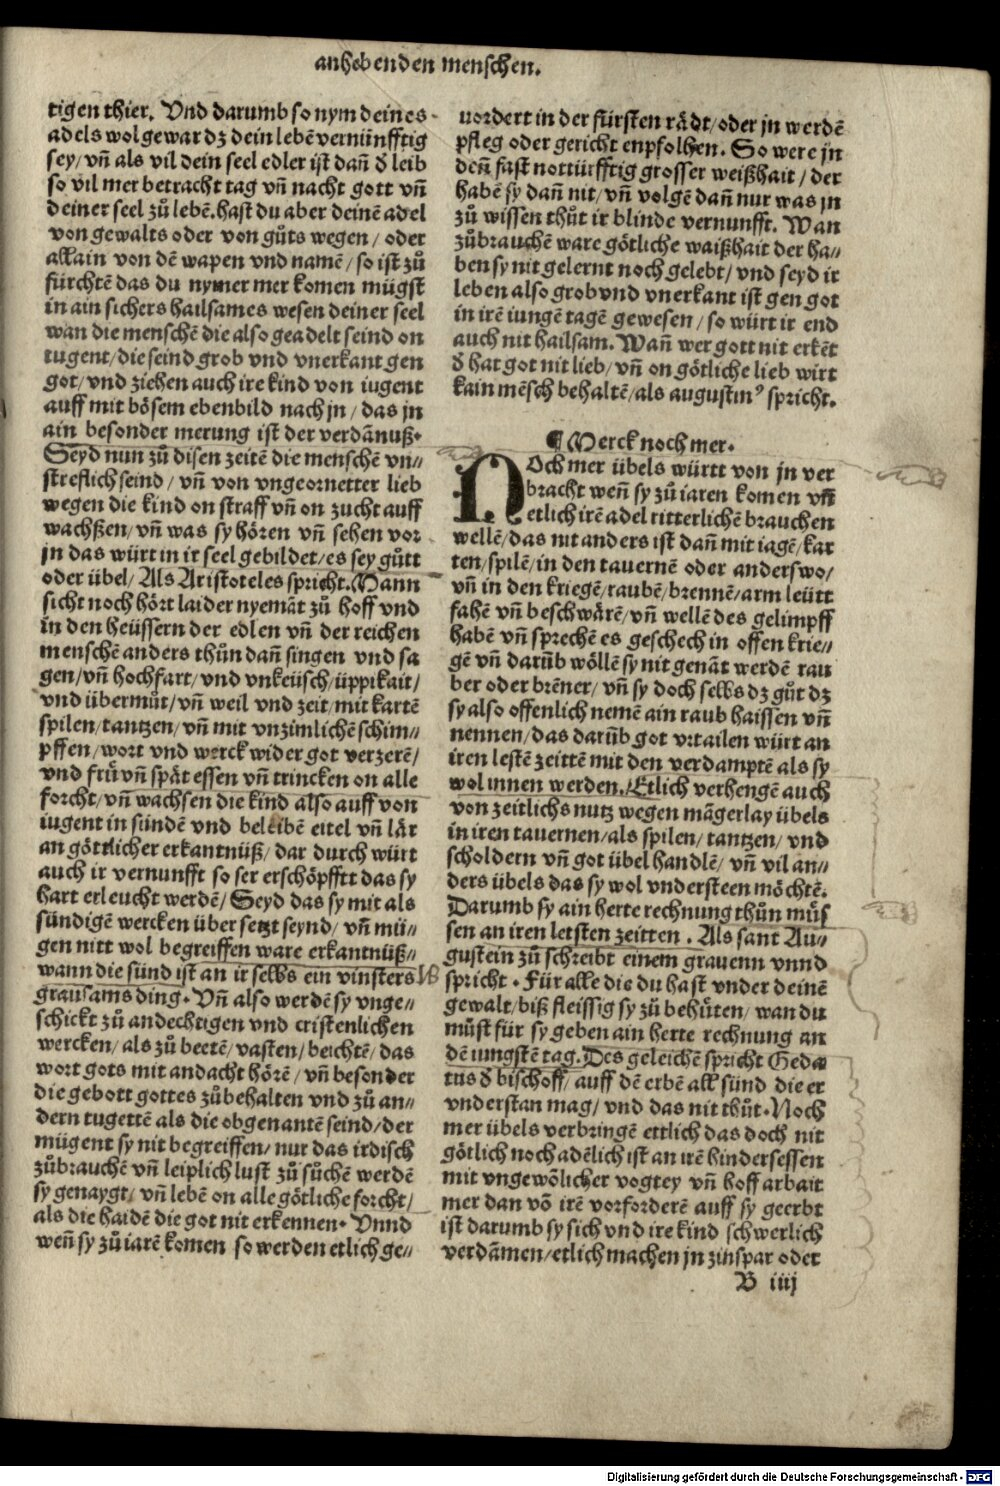 anhebenden menschen.
tigen thier. Vnd darumb so nym deines
adels wol gewar dz dein lebē vernünfftig
sey/ vn̄ als vil dein seel edler ist dan̄ d̕ leib
so vil mer betracht tag vn̄ nacht gott vn̄
deiner seel zů lebē. hast du aber deinē adel
von gewalts oder von gůts wegen/ oder
allain von dē wapen vnd namē/ so ist zů
fürchtē das du nymer mer komen mügst
in ain sichers hailsames wesen deiner seel
wan die menschē die also geadelt seind on
tugent/ die seind grob vnd vnerkant gen
got/ vnd ziehen auch ire kind von iugent
auff mit bösem ebenbild nach jn/ das jn
ain besonder merung ist der verdānuß.
Seyd nun zů disen zeitē die menschē vn⸗
streflich seind/ vn̄ von vngeornetter lieb
wegen die kind on straff vn̄ on zucht auff
wachßen/ vn̄ was sy hören vn̄ sehen vor
jn das würt in ir seel gebildet/ es sey gůtt
oder übel/ Als Aristoteles spricht. Wann
sicht noch hört laider nyemāt zů hoff vnd
in den heüssern der edlen vn̄ der reichen
menschē anders thůn dan̄ singen vnd sa
gen/ vn̄ hochfart/ vnd vnkeüsch/ üppikait/
vnd übermůt/ vn̄ weil vnd zeit/ mit kartē
spilen/ tantzen/ vn̄ mit vnzimlichē schim⸗
pffen/ wort vnd werck wider got verzerē/
vnd frü vn̄ spät essen vn̄ trincken on alle
forcht/ vn̄ wachsen die kind also auff von
iugent in sündē vnd beleibē eitel vn̄ lär
an göttlicher erkantnüß/ dar durch würt
auch ir vernunfft so ser erschöpfftt das sy
hart erleucht werdē/ Seyd das sy mit als
sündigē wercken über setzt seynd/ vn̄ mü⸗
gen nitt wol begreiffen ware erkantnüß⸗
wann die sünd ist an ir selbs ein vinsters
grausams ding. Vn̄ also werdē sy vnge⸗
schickt zů andechtigen vnd cristenlichen
wercken/ als zů beetē/ vasten/ beichtē/ das
wort gots mit andacht hörē/ vn̄ besonder
die gebott gottes zůbehalten vnd zů an⸗
dern tugettē als die obgenantē seind/ der
mügent sy nit begreiffen/ nur das irdisch
zůbrauchē vn̄ leiplich lust zů sůchē werdē
sy genaygt/ vn̄ lebē on alle götliche forcht/
als die haidē die got nit erkennen. Vnnd
wen̄ sy zů iarē komen so werden etlich ge⸗
uordert in der fürsten rädt/ oder jn werdē
pfleg oder gericht enpfolhen. So were jn
den̄ fast nottürfftig grosser weißhait/ der
habē sy dan̄ nit/ vn̄ volgē dan̄ nur was jn
zů wissen thůt ir blinde vernunfft. Wan
zůbrauchē ware götliche waißhait der ha⸗
ben sy nit gelernt noch gelebt/ vnd seyd ir
leben also grob vnd vnerkant ist gen got
in irē iungē tagē gewesen/ so würt ir end
auch nit hailsam. Wan̄ wer gott nit erkēt
d̕ hat got nit lieb/ vn̄ on götliche lieb wirt
kain mēsch behaltē/ als augustinꝰ spricht.
¶ Merck noch mer.
NOch mer übels württ von jn ver
bracht wen̄ sy zů iaren komen vn̄
etlich irē adel ritterlichē brauchen
wellē/ das nit anders ist dan̄ mit iagē/ kar
ten/ spilē/ in den tauernē oder anderswo/
vn̄ in den kriegē/ raubē/ brennē/ arm leütt
fahē vn̄ beschwärē/ vn̄ wellē des gelimpff
habē vn̄ sprechē es geschech in offen krie⸗
gē vn̄ darūb wöllē sy nit genāt werdē rau
ber oder brēner/ vn̄ sy doch selbs dz gůt dz
sy also offenlich nemē ain raub haissen vn̄
nennen/ das darūb got vrtailen würt an
iren lestē zeittē mit den verdamptē als sy
wol innen werden. Etlich verhengē auch
von zeitlichs nutz wegen māgerlay übels
in iren tauernen/ als spilen/ tantzen/ vnd
scholdern vn̄ got übel handlē/ vn̄ vil an⸗
ders übels das sy wol vndersteen möchtē.
Darumb sy ain herte rechnung thůn müs
sen an iren letsten zeitten. Als sant Au⸗
gustein zů schreibt einem grauenn vnnd
spricht. Für alle die du hast vnder deinē
gewalt/ biß fleissig sy zů behüten/ wan du
můst für sy geben ain herte rechnung an
dē iungstē tag. Des geleichē spricht Geda
tus d̕ bischoff/ auff dē erbē all sünd die er
vnderstan mag/ vnd das nit thůt. Noch
mer übels verbringē ettlich das doch nit
götlich noch adēlich ist an irē hindersessen
mit vngewölicher vogtey vn̄ hoff arbait
mer dan vō irē vorforderē auff sy geerbt
ist darumb sy sich vnd ire kind schwerlich
verdāmen/ etlich machen jn zinspar oder
B iiij
Digitalisierung gefördert durch die Deutsche Forschungsgemeinschaft - DFG